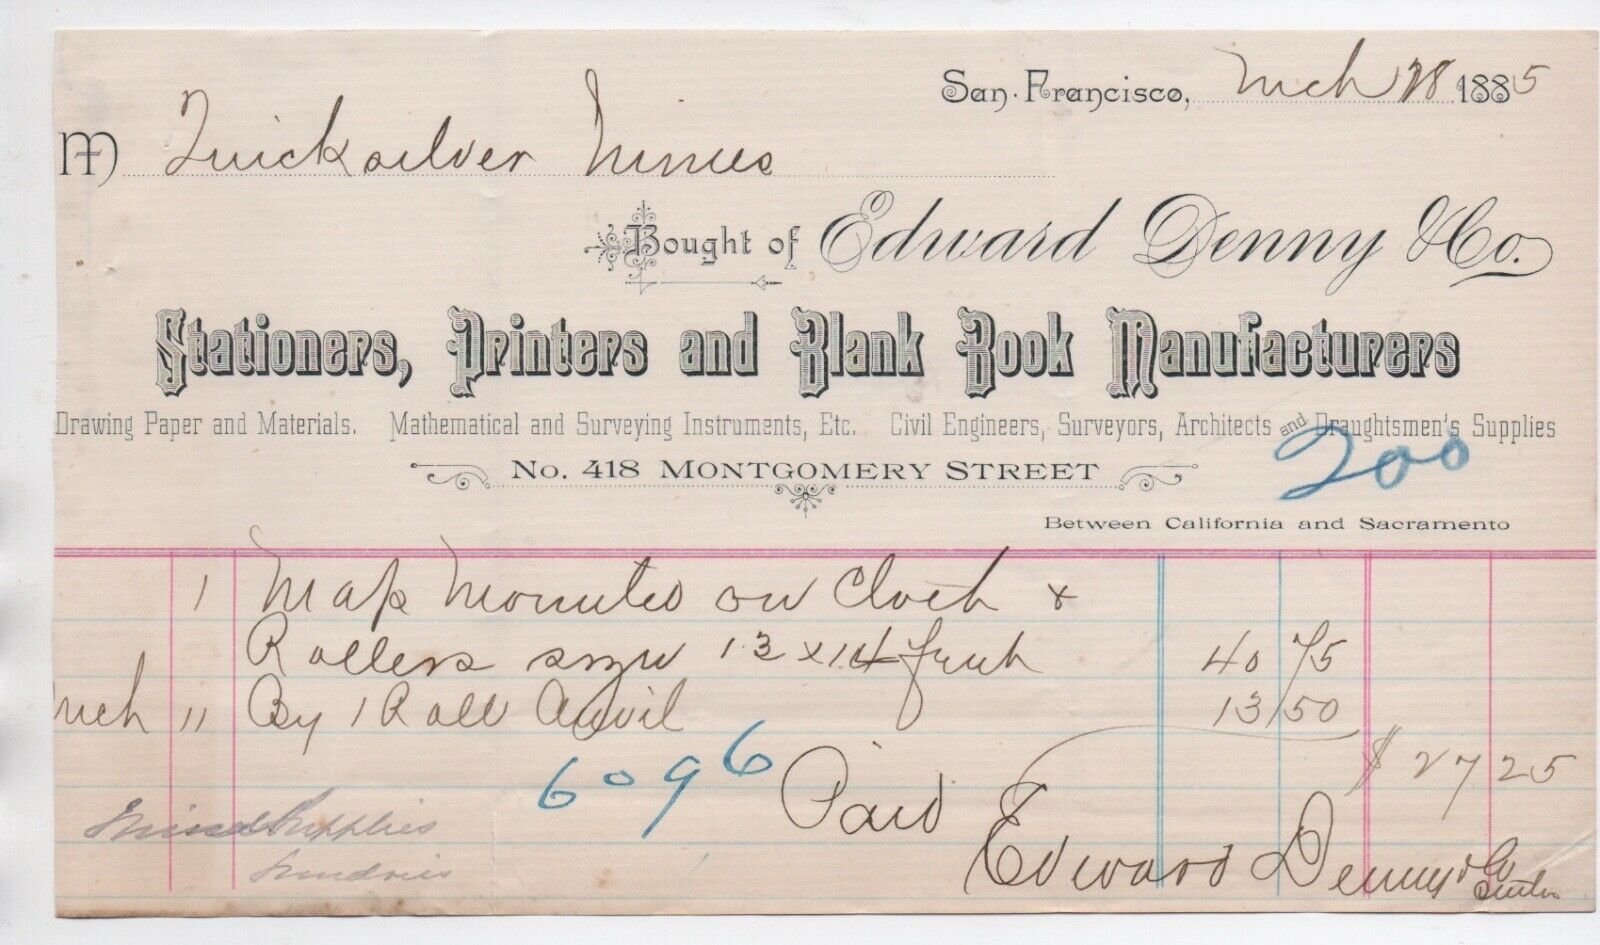 San Francisco, Mch 28 1885
M Quicksilver Mines
Bought of Edward Denny & Co.
Stationers, Printers and Blank Book Manufacturers
Drawing Paper and Materials. Mathematical and Surveying Instruments, Etc. Civil Engineers, Surveyors, Architects and Draughtsmen's Supplies
No. 418 Montgomery Street
200
Between California and Sacramento
1 Map Mounted on Cloth &
Rollers size 13 x 14 feet 40 75
Mch 11 By 1 Roll 13 50
$ 27 25
6096
Paid
Supplies
Sundries
Edward Denny & Co